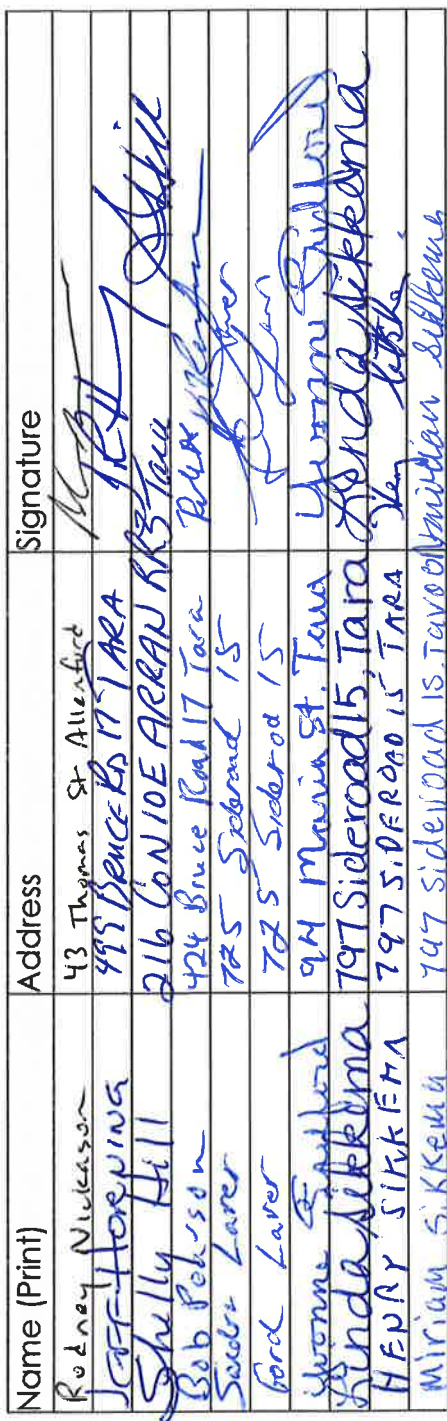 Name (Print) Address Signature
Rodney Nickason 43 Thomas St Allenford
JEFF HORNING 499 BRUCE RD 17 TARA
Shelly Hill 216 CON 10 E ARRAN RR3 Tara
Bob Pearson 424 Bruce Road 17 Tara
Laver 725 Sideroad 15
Gord Laver 725 Siderod 15
Yvonne Bradford 94 Maria St. Tara Yvonne Bradford
Linda Sikkema 797 Sideroad 15, Tara Linda Sikkema
HENRY SIKKEMA 797 SIDEROAD 15 TARA
Miriam Sikkema 797 sideroad 15 Tara ON Miriam Sikkema